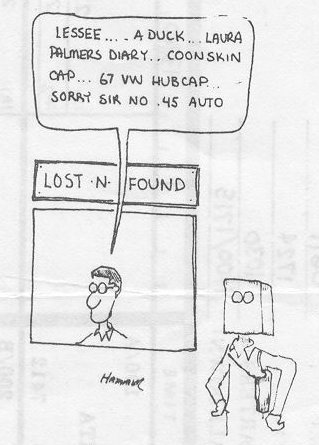 LESSEE.... A DUCK... LAURA
PALMERS DIARY.. COONSKIN
CAP... 67 VW HUBCAP...
SORRY SIR NO .45 AUTO
LOST ·N· FOUND